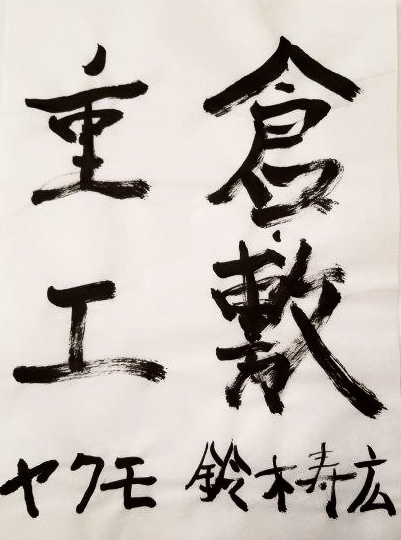 倉敷
重工
鈴木寿広
ヤクモ